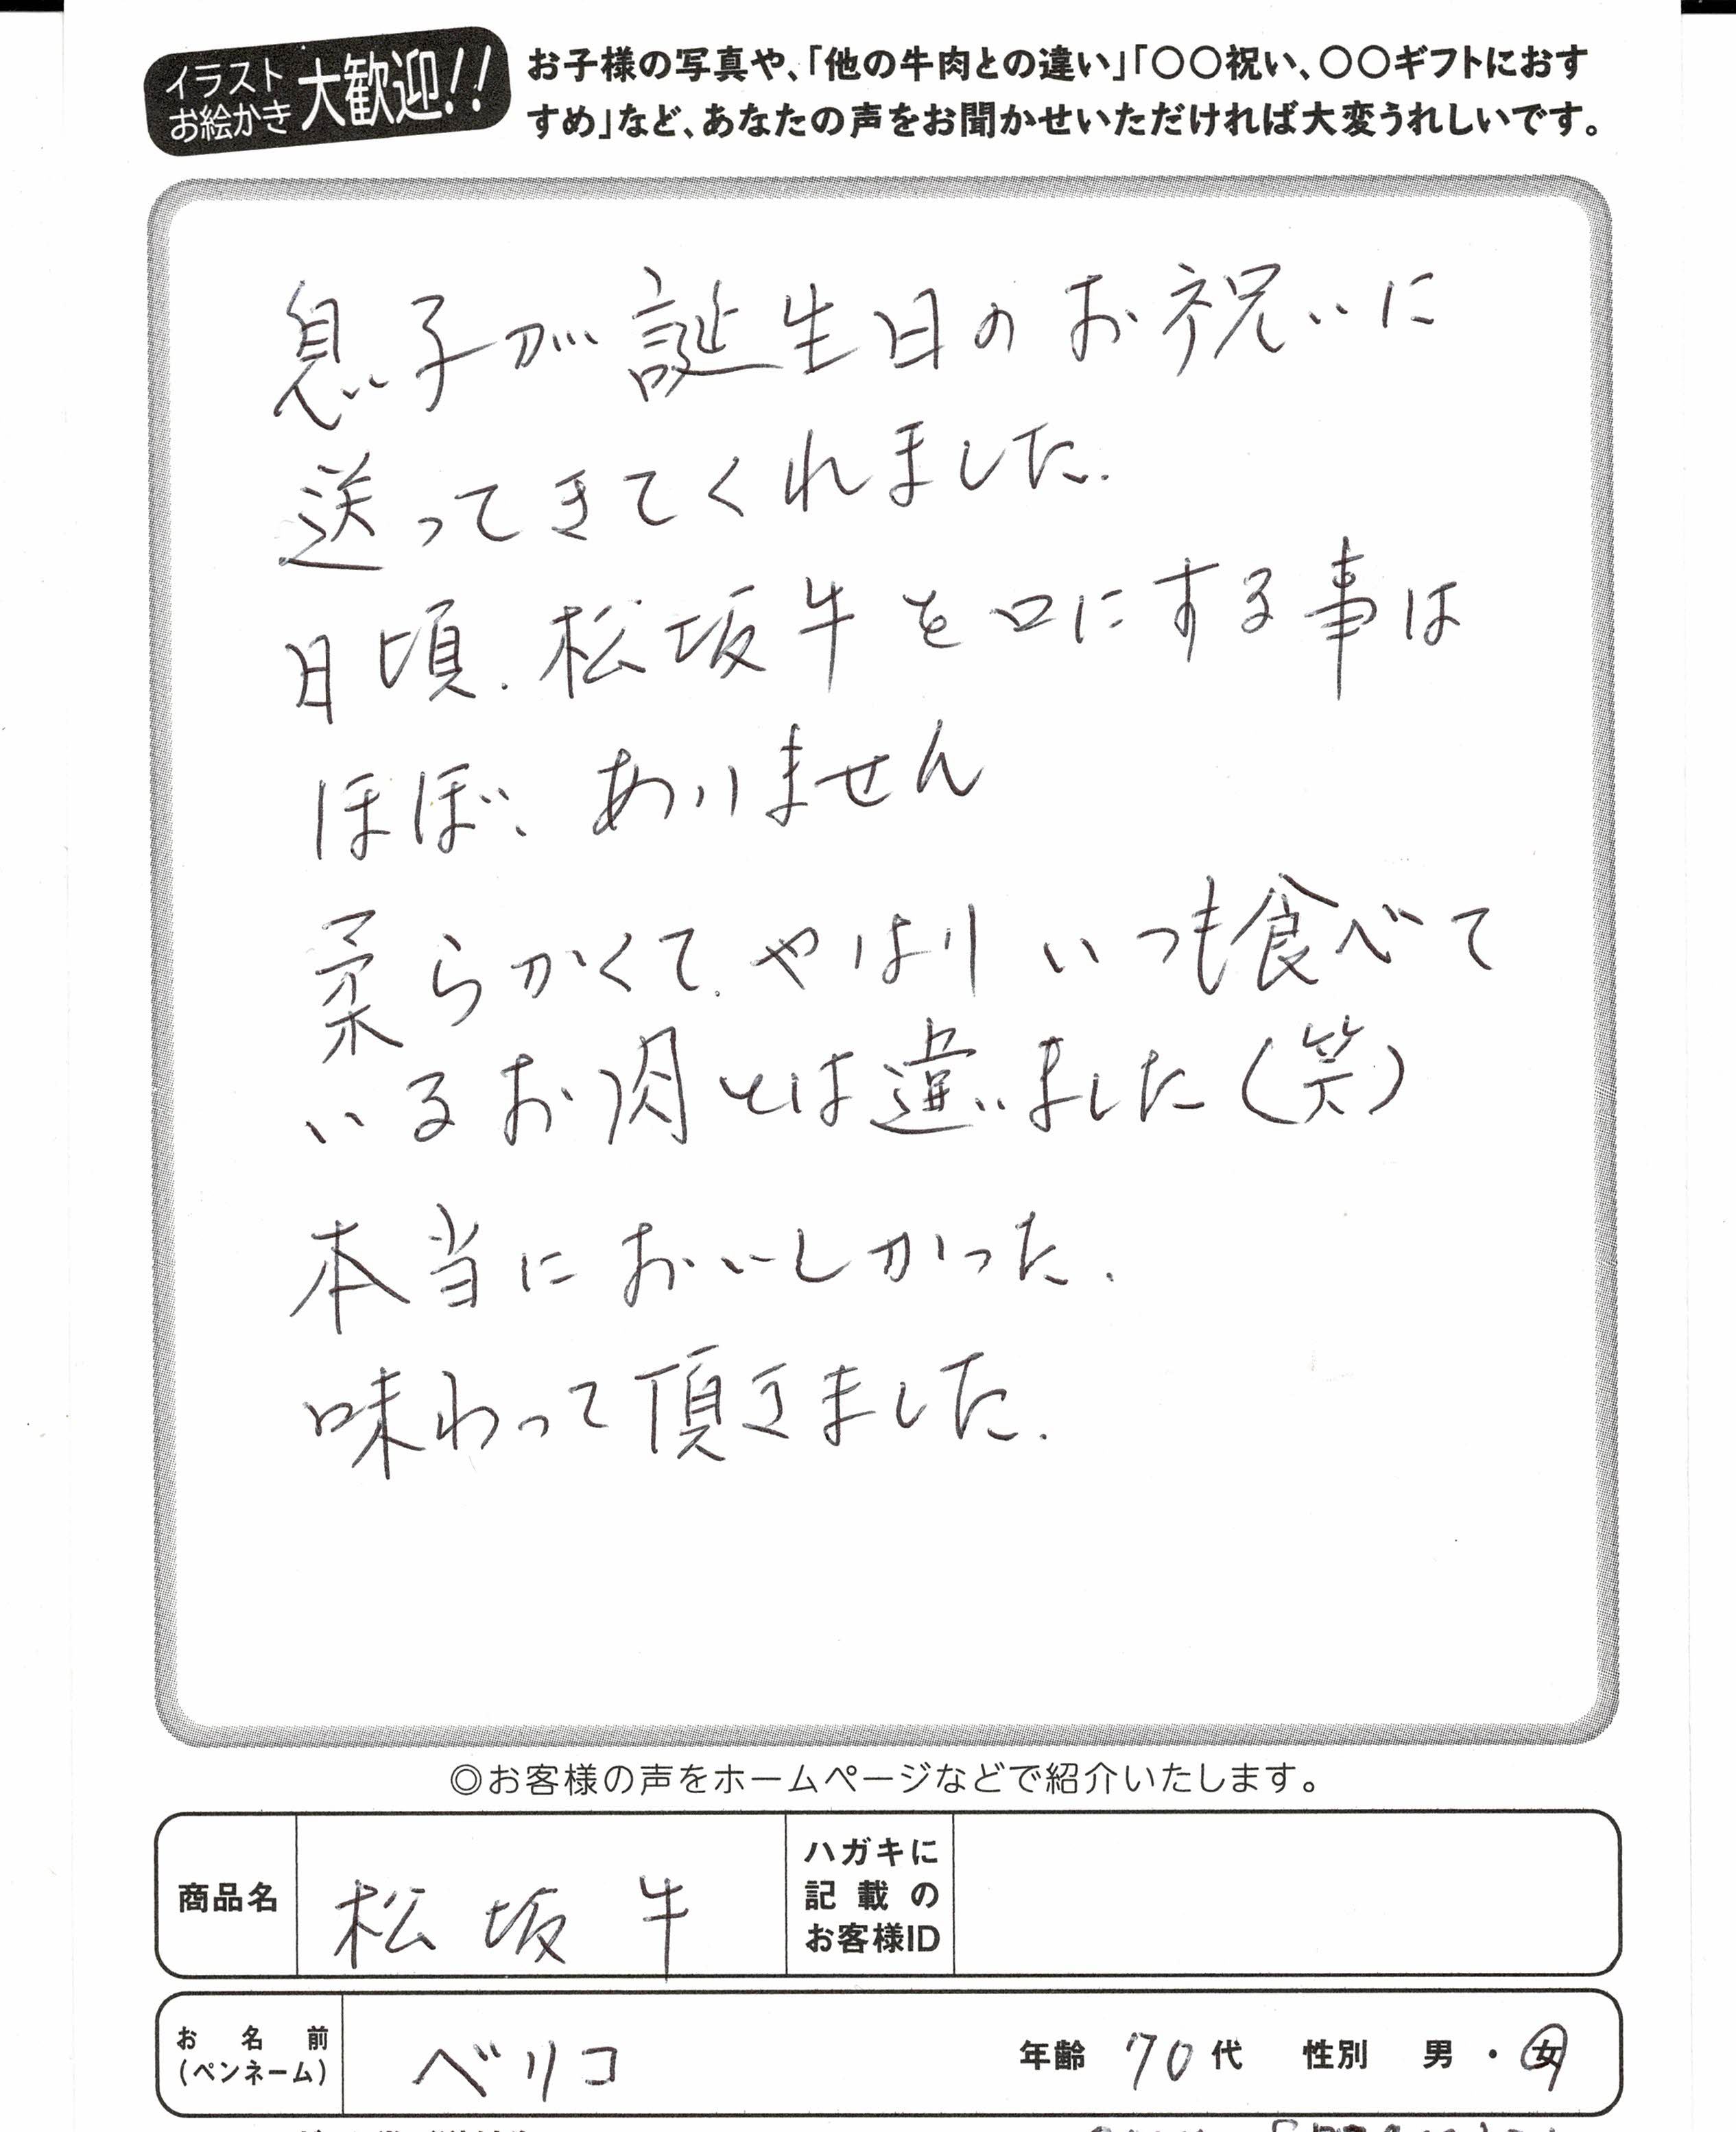 イラスト
お絵かき
大歓迎!!
お子様の写真や、「他の牛肉との違い」「○○祝い、○○ギフトにおす
すめ」など、あなたの声をお聞かせいただければ大変うれしいです。
息子が誕生日のお祝いに
送ってきてくれました.
日頃、松坂牛を口にする事は
ほぼ、ありません
柔らかくて、やはりいつも食べて
いるお肉とは違いました(笑)
本当においしかった.
味わって頂きました.
◎お客様の声をホームページなどで紹介いたします。
商品名 松坂牛
ハガキに
記載の
お客様ID
お名前
(ペンネーム)
ベリコ
年齢 70代 性別 男・女